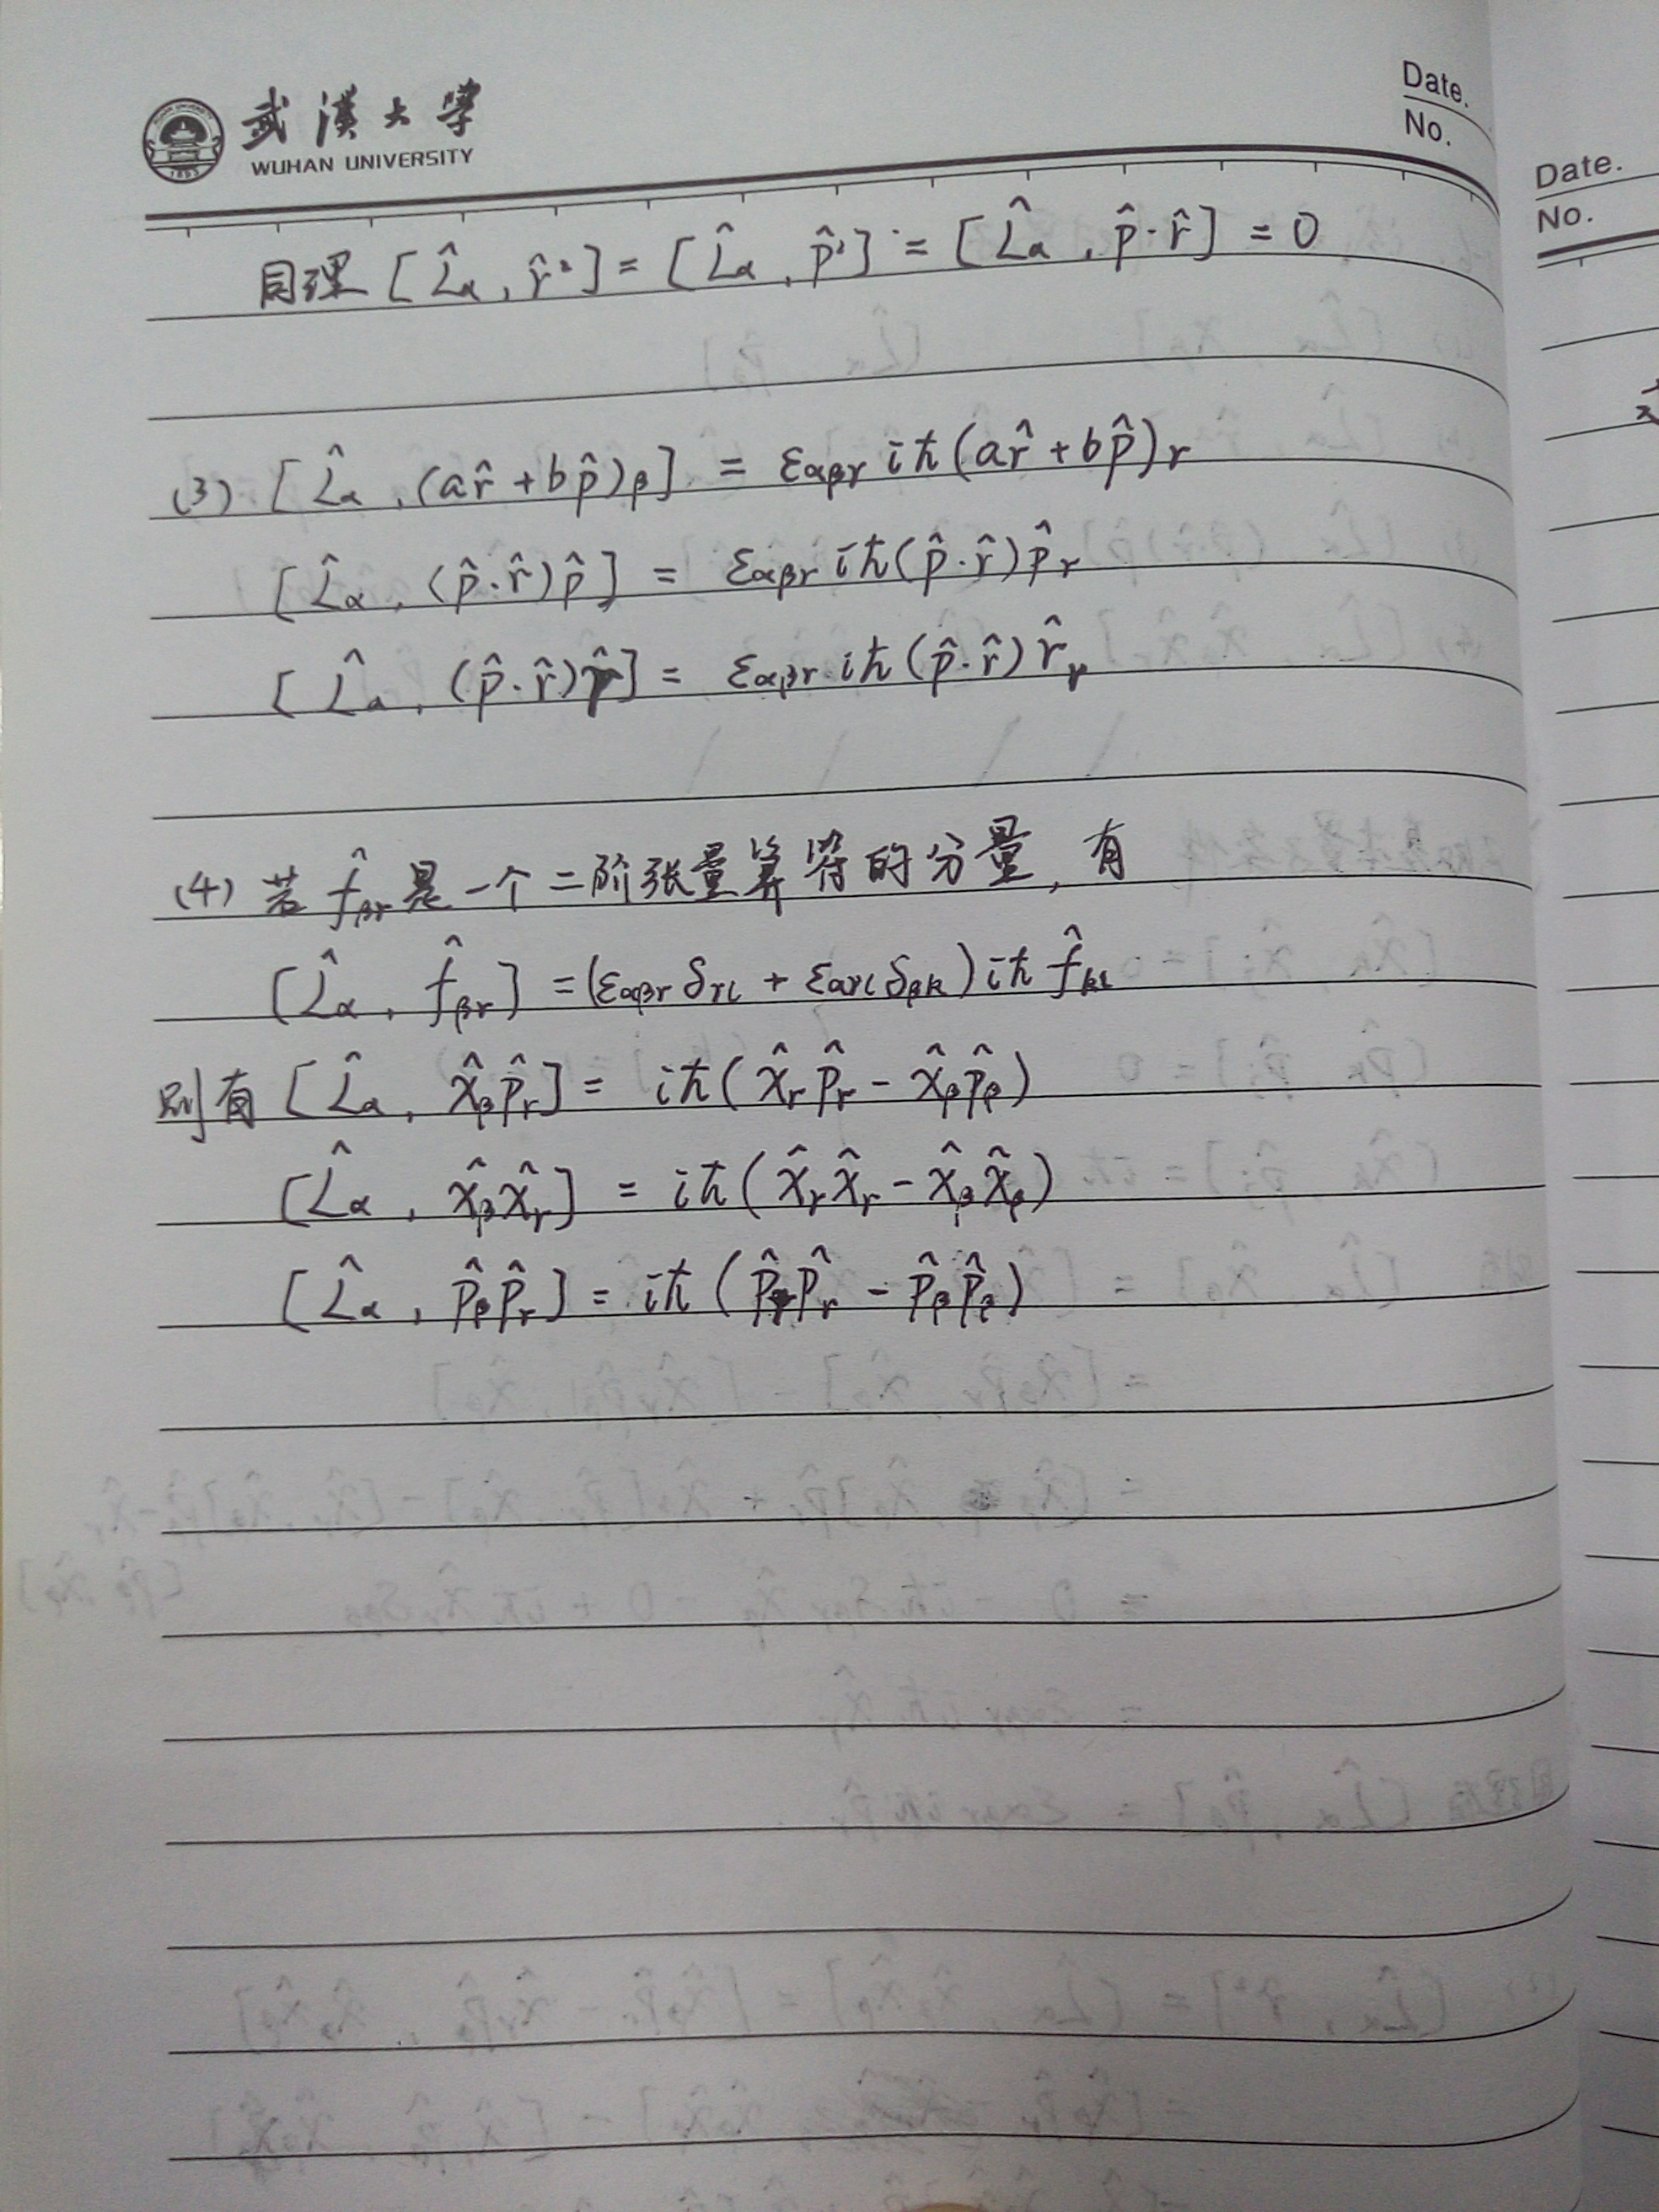 武漢大學
WUHAN UNIVERSITY
1893
Date.
No.
Date.
No.
同理 [L̂α, r̂²] = [L̂α, p̂²] = [L̂α, p̂·r̂] = 0
(3) [L̂α, (ar̂+bp̂)β] = εαβγ iħ(ar̂+bp̂)γ
[L̂α, (p̂·r̂)p̂] = εαβγ iħ(p̂·r̂)p̂γ
[L̂α, (p̂·r̂)r̂] = εαβγ iħ(p̂·r̂)r̂γ
(4) 若 f̂βγ是一个二阶张量算符的分量, 有
[L̂α, f̂βγ] = (εαβγ δγl + εαγl δβk) iħ f̂kl
则有 [L̂α, x̂βp̂γ] = iħ(x̂γp̂γ - x̂βp̂β)
[L̂α, x̂βx̂γ] = iħ(x̂γx̂γ - x̂βx̂β)
[L̂α, p̂βp̂γ] = iħ(p̂γp̂γ - p̂βp̂β)